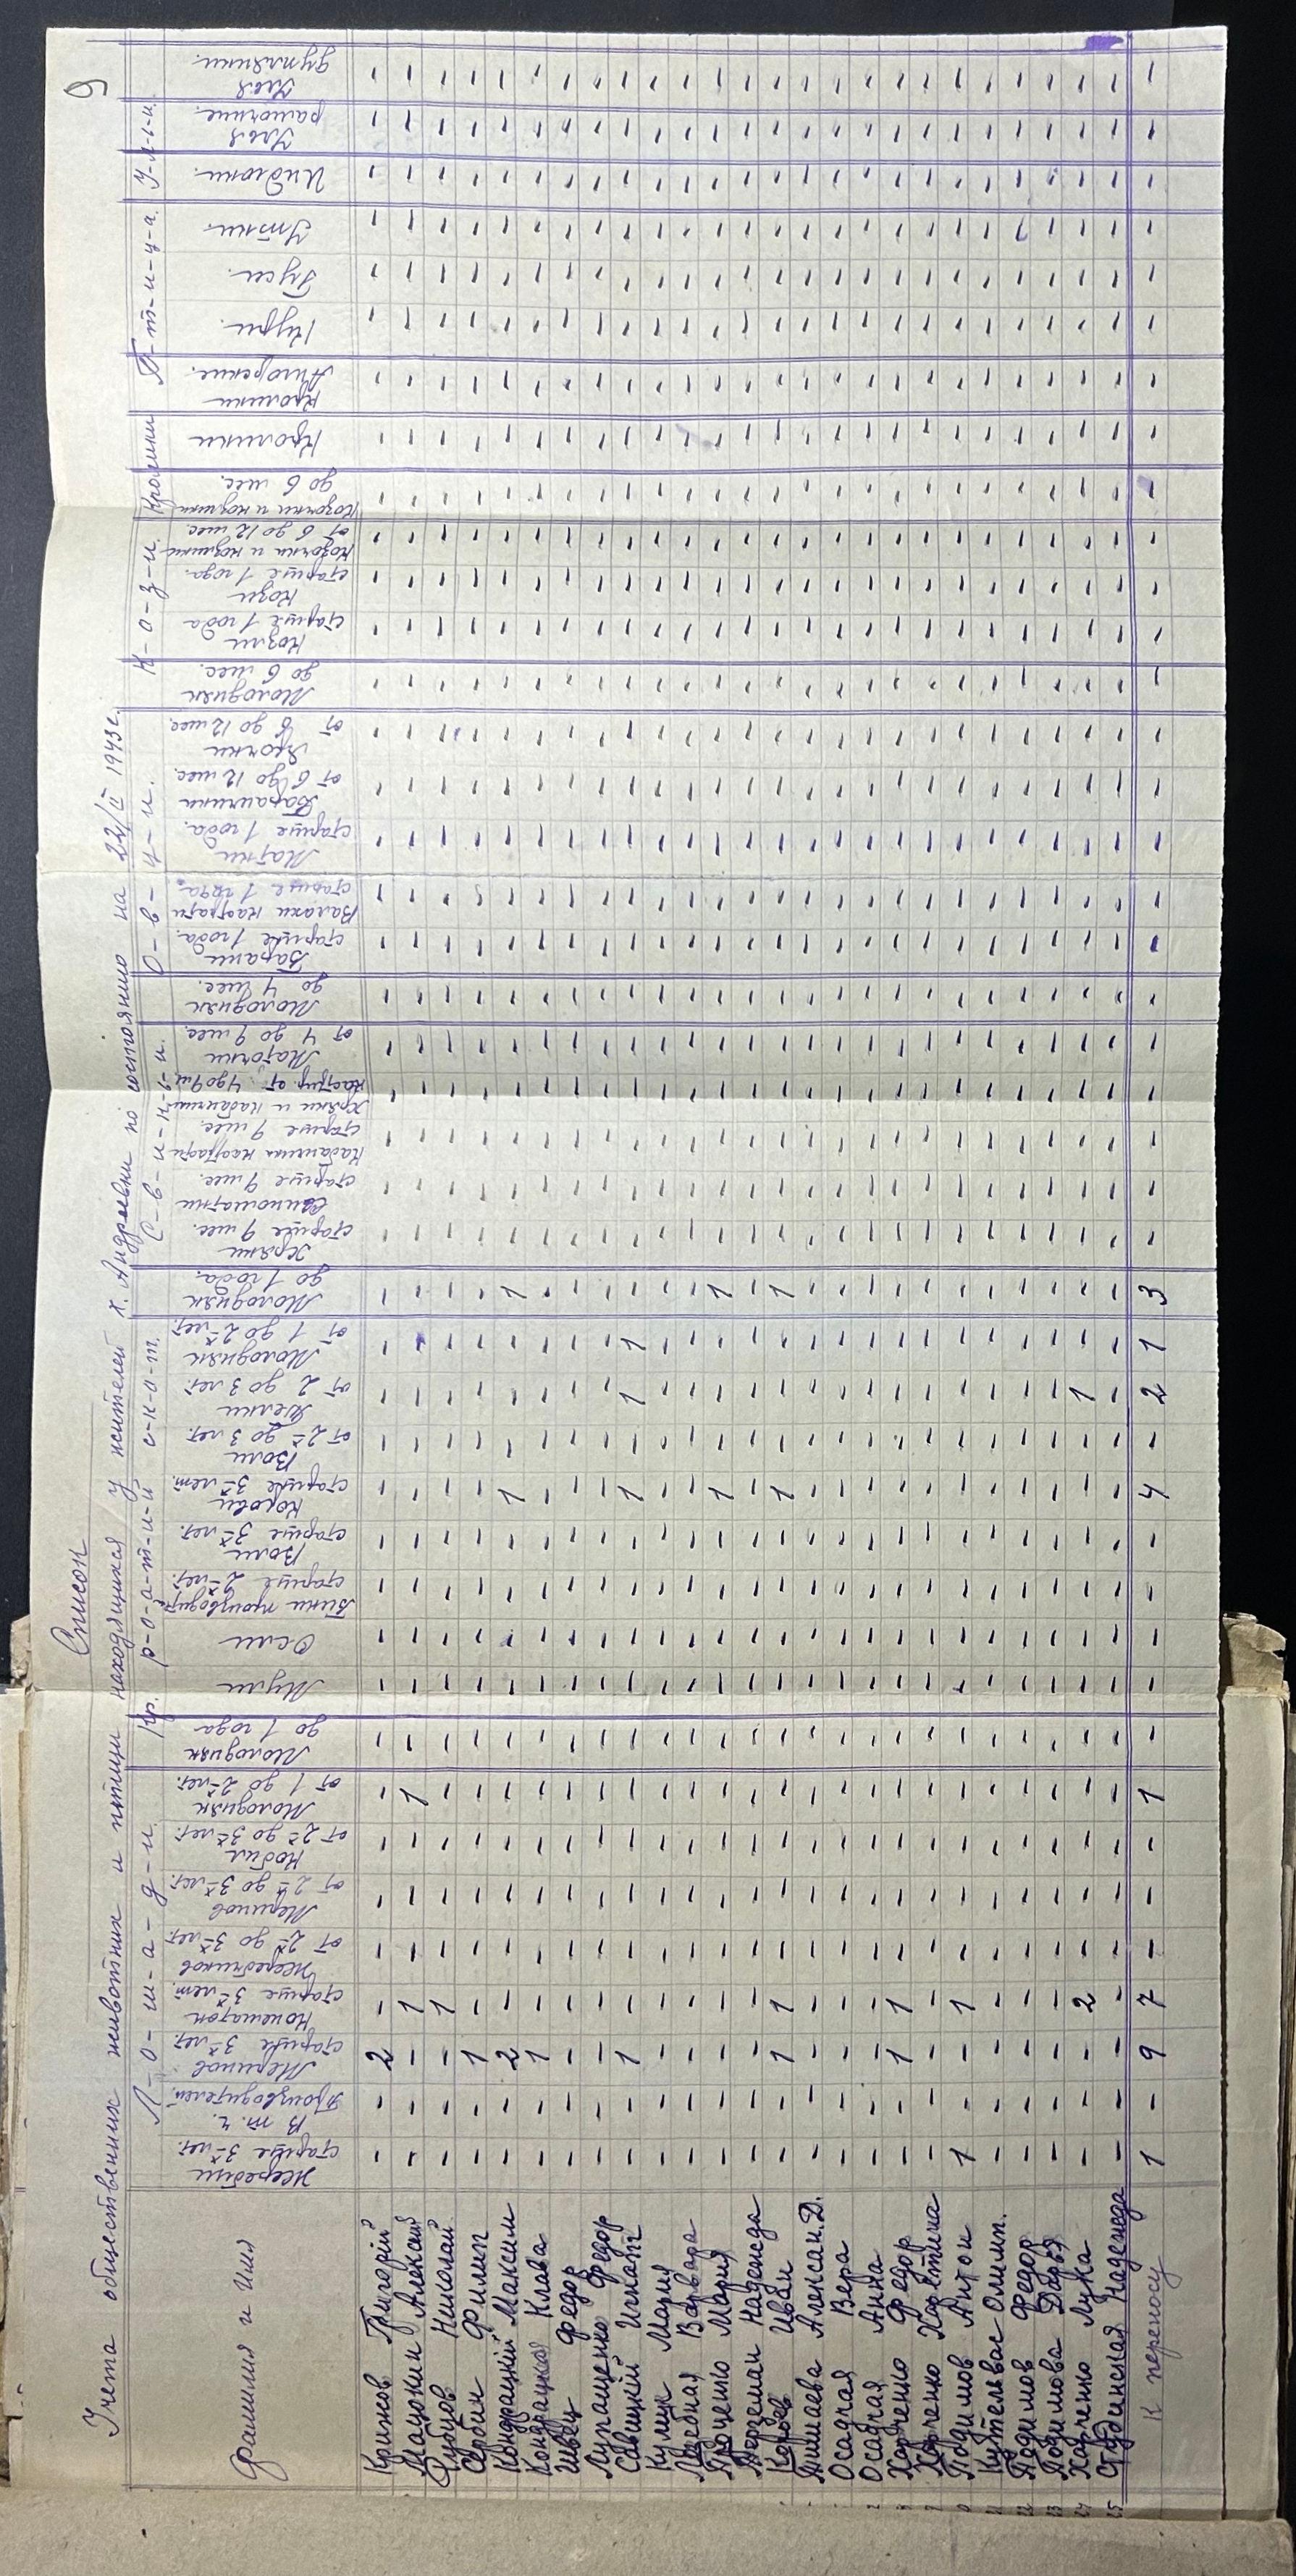 9
Список
Учета общественних животних и птици находящихся у жителей х. Андреевки по состоянию на 22/II 1943 г.
Фамилия и Имя
Л-о-ш-а-д-и
Кр. р-о-а-т-и-й с-к-о-т.
С-в-и-н-ь-и.
О-в-ц-и.
К-о-з-и.
Кролики
П-т-и-ц-а.
У-л-ь-и.
Жеребци старше 3-х лет.
В т.ч. Производителей
Меринов старше 3-х лет.
Конематок старше 3-х лет.
Жеребчиков от 2-х до 3-х лет.
Меринов от 2-х до 3-х лет.
Кобил от 2-х до 3-х лет.
Молодняк от 1 до 2-х лет.
Молодняк до 1 года
Мули
Осли
Бики производит. старше 2-х лет.
Воли старше 3-х лет.
Корови старше 3-х лет.
Воли от 2-х до 3 лет.
Телки от 2 до 3 лет.
Молодняк от 1 до 2-х лет.
Молодняк до 1 года.
Хряки старше 9 мес.
Свиноматки старше 9 мес.
Кабанчики кастрати старше 9 мес.
Хряки и кабанчики кастрир. от 4 до 9 м.
Маточки от 4 до 9 мес.
Молодняк до 4 мес.
Барани старше 1 года.
Валахи кастрати старше 1 года.
Матки старше 1 года.
Баранчики от 6 до 12 мес.
Ярочки от 6 до 12 мес.
Молодняк до 6 мес.
Козли старше 1 года
Кози старше 1 года.
Козочки и козлики от 6 до 12 мес.
Козочки и козлики до 6 мес.
Кролики
Кролики Ангорские.
Кури.
Гуси.
Утки.
Индюки.
Улья рамочние.
Улья дуплянки.
Крижков Григорій - - 2 -
Мацокин Алексий - - - 1 - - - 1
Николай - - - 1
Сербин Филип - - 1 -
Кондрацкій Максим - - 2 - 1 1
Кондрацкая Клава - - 1 -
Швец Федор
Лупащенко Федор
Савицкій Игнат - - 1 - 1 1 1
Кулик Мария
Лозебная Варвара
Проценко Мария 1 1
Дерземан Надежда
Коробов Иван - - 1 1 1 1
Тишаева Алексан. Д.
Осадчая Вера
Осадчая Анна
Харченко Федор - - 1 1
Харченко Харетина
Подимов Антон 1 - - 1
Кутельвас Олимп.
Подимов Федор
Подимова Дарья
24 Харченко Лука - - - 2 1
25 Студинская Надежда
К переносу 1 - 9 7 - - - 1 - - - - - 4 - 2 1 3